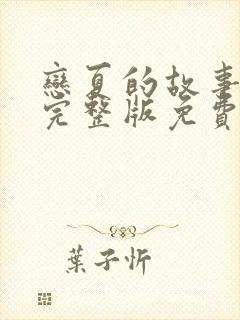 戀夏的故事
完整版免費
葉子忻